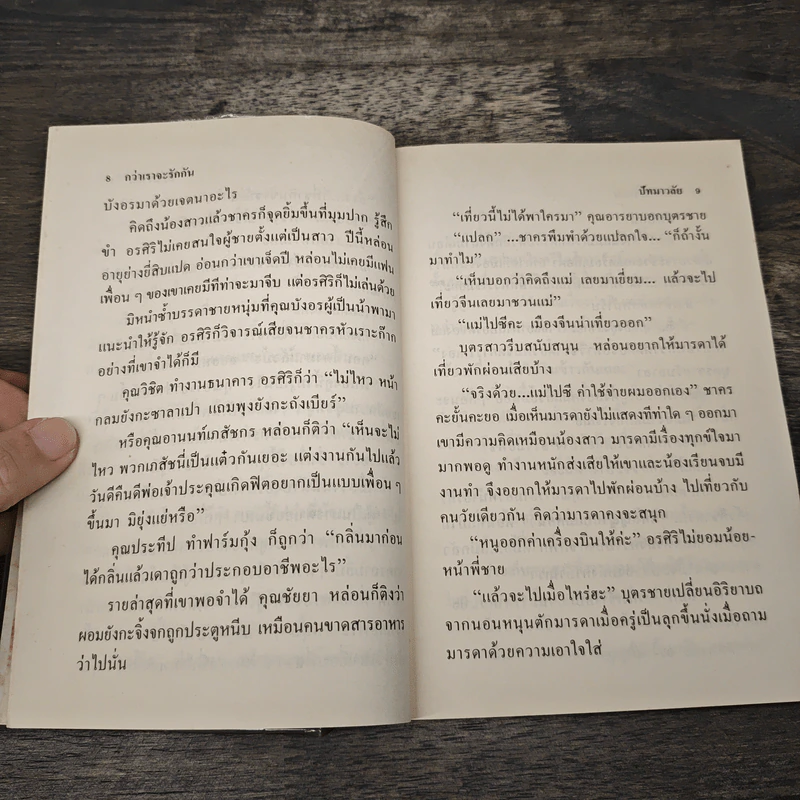 8 กว่าเราจะรักกัน
บังอรมาด้วยเจตนาอะไร
คิดถึงน้องสาวแล้วชาครก็จุดยิ้มขึ้นที่มุมปาก รู้สึก
ขำ อรศิริไม่เคยสนใจผู้ชายตั้งแต่เป็นสาว ปีนี้หล่อน
อายุย่างยี่สิบแปด อ่อนกว่าเขาเจ็ดปี หล่อนไม่เคยมีแฟน
เพื่อน ๆ ของเขาเคยมีทีท่าจะมาจีบ แต่อรศิริก็ไม่เล่นด้วย
มิหนำซ้ำบรรดาชายหนุ่มที่คุณบังอรผู้เป็นน้าพามา
แนะนำให้รู้จัก อรศิริก็วิจารณ์เสียจนชาครหัวเราะก๊าก
อย่างที่เขาจำได้ก็มี
คุณวิชิต ทำงานธนาคาร อรศิริก็ว่า “ไม่ไหว หน้า
กลมยังกะซาลาเปา แถมพุงยังกะถังเบียร์”
หรือคุณอานนท์เภสัชกร หล่อนก็ติว่า “เห็นจะไม่
ไหว พวกเภสัชนี่เป็นแต๋วกันเยอะ แต่งงานกันไปแล้ว
วันดีคืนดีพ่อเจ้าประคุณเกิดฟิตอยากเป็นแบบเพื่อน ๆ
ขึ้นมา มิยุ่งแย่หรือ”
คุณประทีป ทำฟาร์มกุ้ง ก็ถูกว่า “กลิ่นมาก่อน
ได้กลิ่นแล้วเดาถูกว่าประกอบอาชีพอะไร”
รายล่าสุดที่เขาพอจำได้ คุณชัยยา หล่อนก็ติงว่า
ผอมยังกะจิ้งจกถูกประตูหนีบ เหมือนคนขาดสารอาหาร
ว่าไปนั่น
ปัทมาวลัย 9
“เที่ยวนี้ไม่ได้พาใครมา” คุณอารยาบอกบุตรชาย
“แปลก” ...ชาครพึมพำด้วยแปลกใจ... “ก็ถ้างั้น
มาทำไม”
“เห็นบอกว่าคิดถึงแม่ เลยมาเยี่ยม... แล้วจะไป
เที่ยวจีนเลยมาชวนแม่”
“แม่ไปซีคะ เมืองจีนน่าเที่ยวออก”
บุตรสาวรีบสนับสนุน หล่อนอยากให้มารดาได้
เที่ยวพักผ่อนเสียบ้าง
“จริงด้วย...แม่ไปซี ค่าใช้จ่ายผมออกเอง” ชาคร
คะยั้นคะยอ เมื่อเห็นมารดายังไม่แสดงทีท่าใด ๆ ออกมา
เขามีความคิดเหมือนน้องสาว มารดามีเรื่องทุกข์ใจมา
มากพอดู ทำงานหนักส่งเสียให้เขาและน้องเรียนจบมี
งานทำ จึงอยากให้มารดาไปพักผ่อนบ้าง ไปเที่ยวกับ
คนวัยเดียวกัน คิดว่ามารดาคงจะสนุก
“หนูออกค่าเครื่องบินให้ค่ะ” อรศิริไม่ยอมน้อย-
หน้าพี่ชาย
“แล้วจะไปเมื่อไหร่ฮะ” บุตรชายเปลี่ยนอิริยาบถ
จากนอนหนุนตักมารดาเมื่อครู่เป็นลุกขึ้นนั่งเมื่อถาม
มารดาด้วยความเอาใจใส่